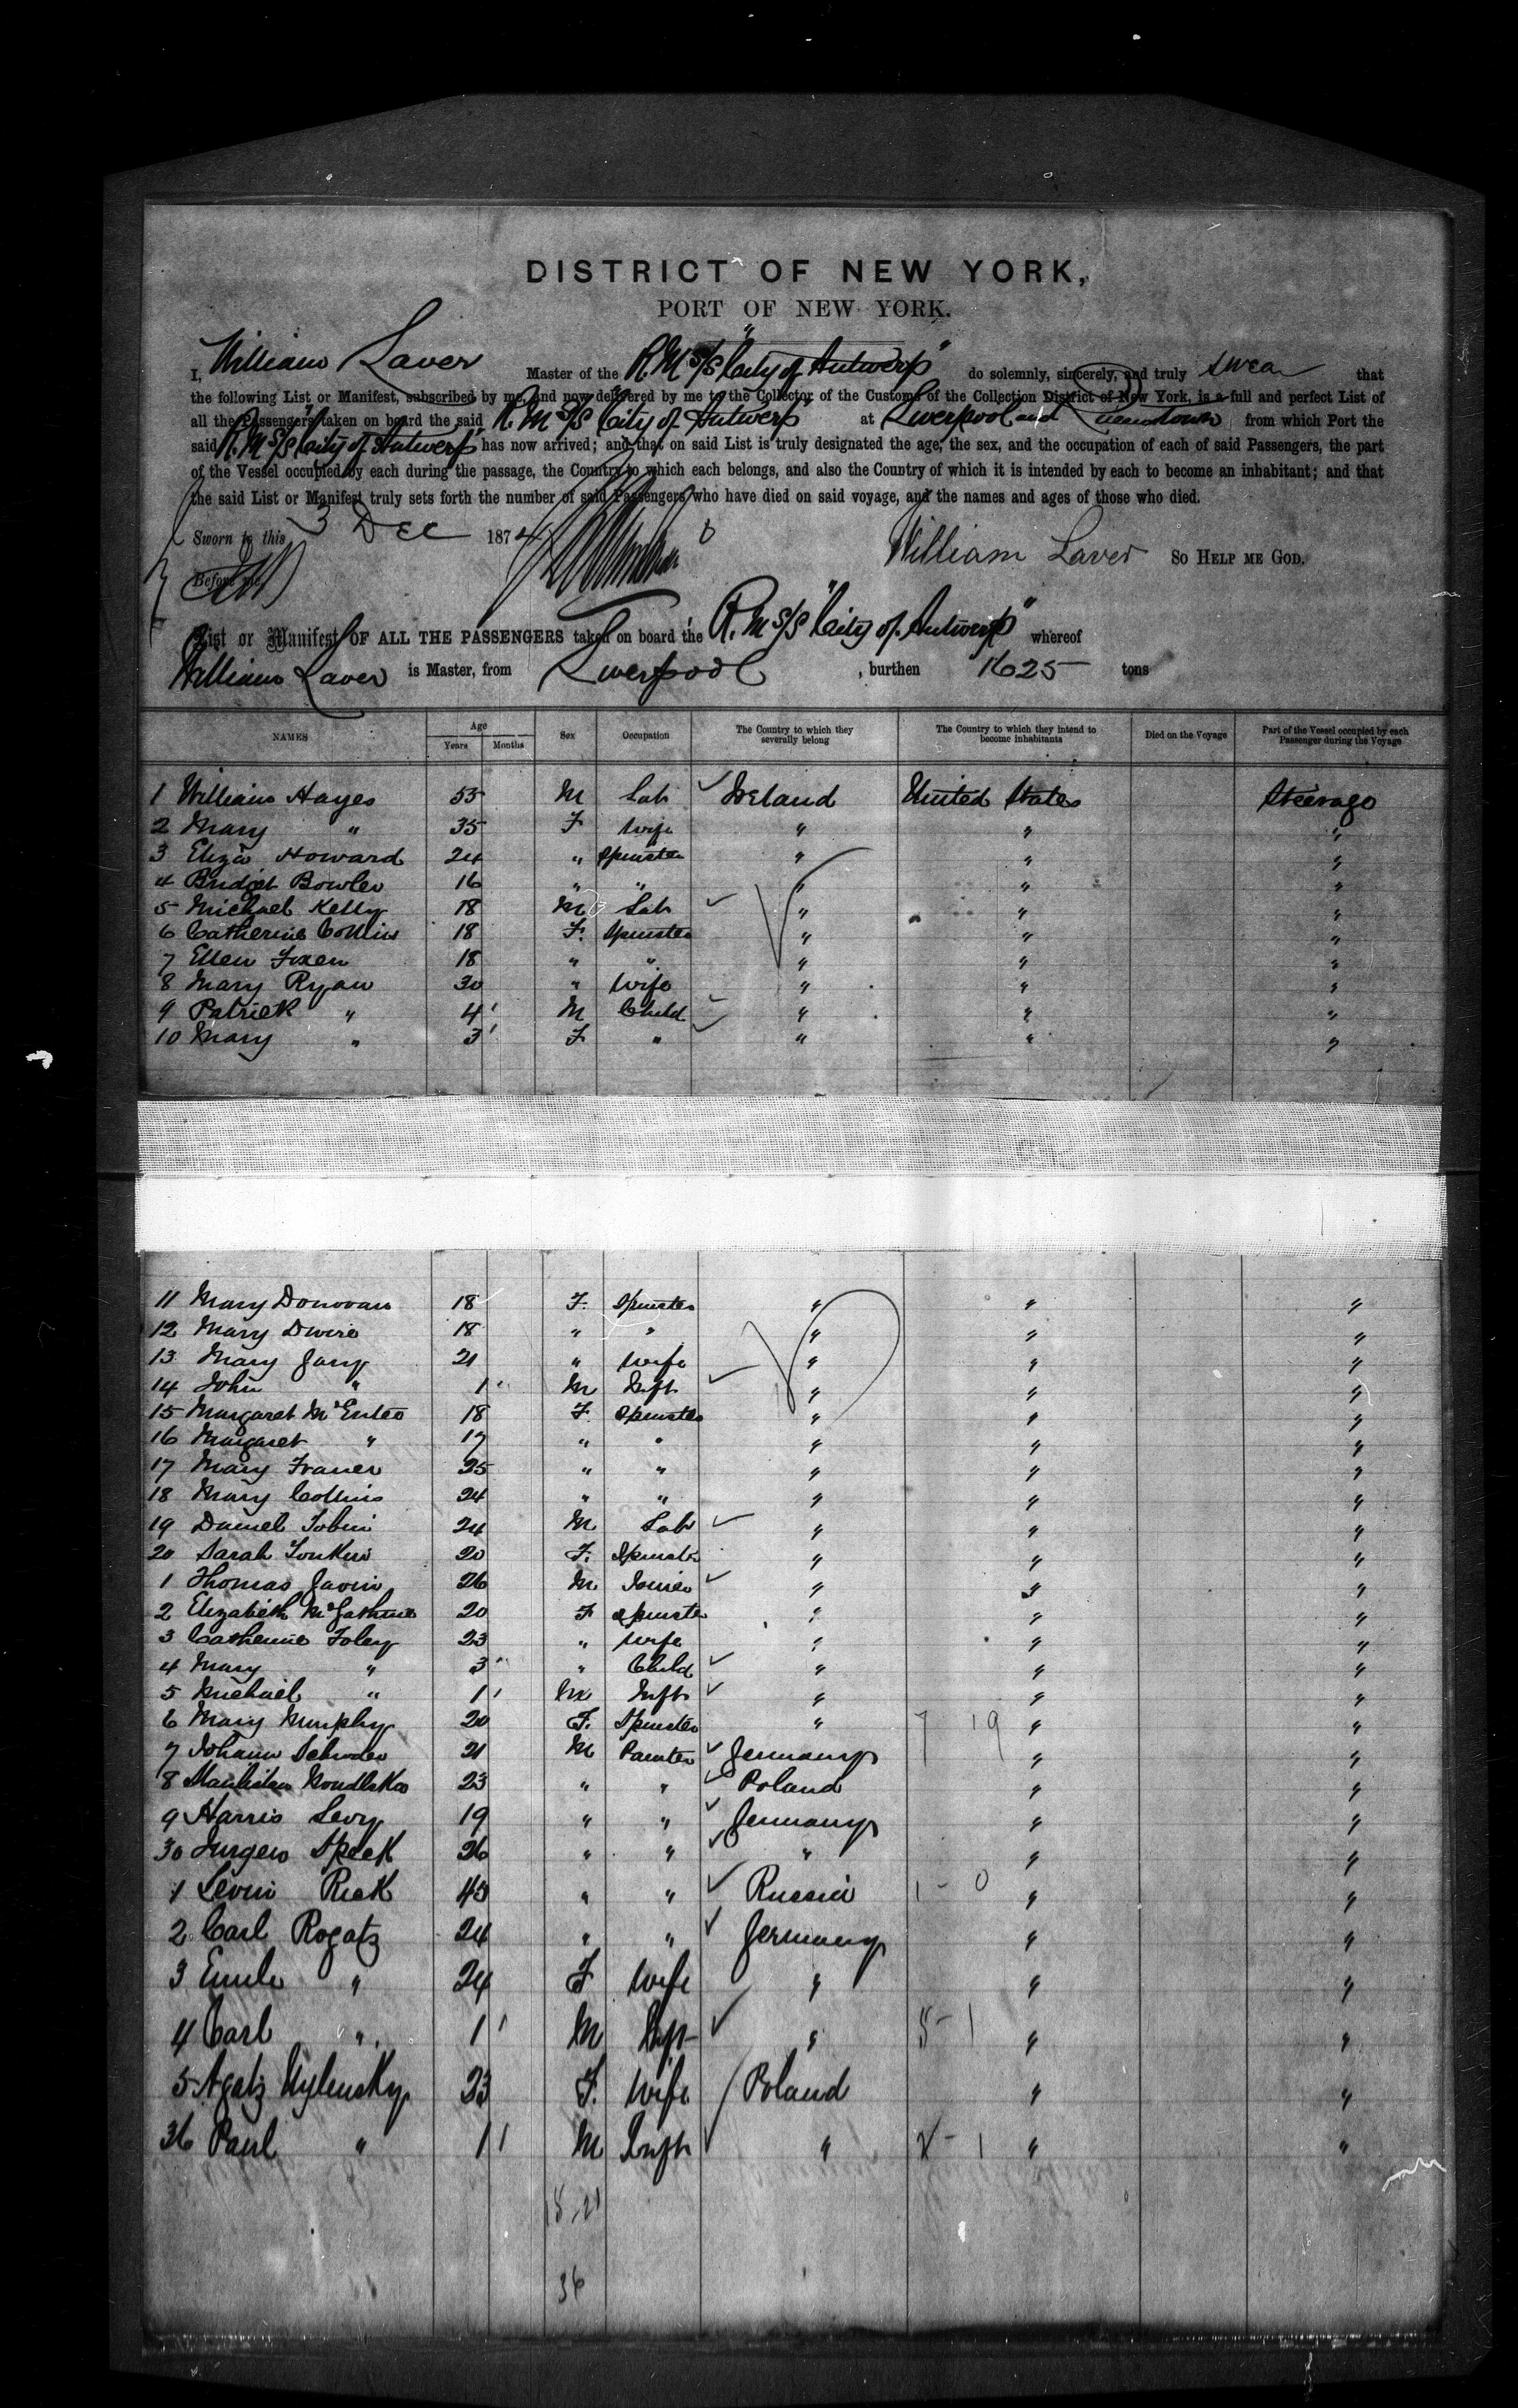 DISTRICT OF NEW YORK,
PORT OF NEW YORK.
I, William Laver Master of the R.M.S/S "City of Antwerp" do solemnly, sincerely, and truly swear that
the following List or Manifest, subscribed by me, and now delivered by me to the Collector of the Customs of the Collection District of New York, is a full and perfect List of
all the Passengers taken on board the said R.M.S/S City of Antwerp at Liverpool and Queenstown from which Port the
said R.M.S/S "City of Antwerp" has now arrived; and that on said List is truly designated the age, the sex, and the occupation of each of said Passengers, the part
of the Vessel occupied by each during the passage, the Country to which each belongs, and also the Country of which it is intended by each to become an inhabitant; and that
the said List or Manifest truly sets forth the number of said Passengers who have died on said voyage, and the names and ages of those who died.
Sworn to this 3 Dec 1874
William Laver So HELP ME GOD.
Before me
List or Manifest OF ALL THE PASSENGERS taken on board the R.M.S/S "City of Antwerp" whereof
William Laver is Master, from Liverpool, burthen 1625 tons
NAMES Age Years Months Sex Occupation The Country to which they severally belong The Country to which they intend to become inhabitants Died on the Voyage Part of the Vessel occupied by each Passenger during the Voyage
1 William Hayes 55 M Lab Ireland United States Steerage
2 Mary " 35 F Wife " " "
3 Eliza Howard 24 " Spinster " " "
4 Bridget Bowler 16 " " " " "
5 Michael Kelly 18 M Lab " " "
6 Catherine Collins 18 F. Spinster " " "
7 Ellen Foxen 18 " " " " "
8 Mary Ryan 30 " Wife " " "
9 Patrick " 4 M Child " " "
10 Mary " 3 F " " " "
11 Mary Donovan 18 F. Spinster " " "
12 Mary Dwire 18 " " " " "
13 Mary Jany 21 " Wife " " "
14 John " 1 M Inft " " "
15 Margaret McEntee 18 F. Spinster " " "
16 Margaret " 17 " " " " "
17 Mary Franer 25 " " " " "
18 Mary Collins 24 " " " " "
19 Daniel Tobin 24 M Lab " " "
20 Sarah Tonkin 20 F. Spinster " " "
1 Thomas Gavin 26 M Joiner " " "
2 Elizabeth 20 F Spinster " " "
3 Catherine Foley 23 " Wife " " "
4 Mary " 3 " Child " " "
5 Michael " 1 M Inft " " "
6 Mary Murphy 20 F. Spinster " 7 19 " "
7 Johann Schroder 21 M Painter Germany " "
8 23 " " Poland " "
9 Harris Levy 19 " " Germany " "
30 Jurgen Speek 26 " " " " "
1 Levin Riek 45 " " Russia 1 - 0 " "
2 Carl Rogatz 24 " " Germany " "
3 Emile " 24 F Wife " " "
4 Carl " 1 M Inft " 5 - 1 " "
5 Agatz 23 F. Wife Poland " "
36 Paul " 1 M Inft " 2 - 1 " "
15.21
36